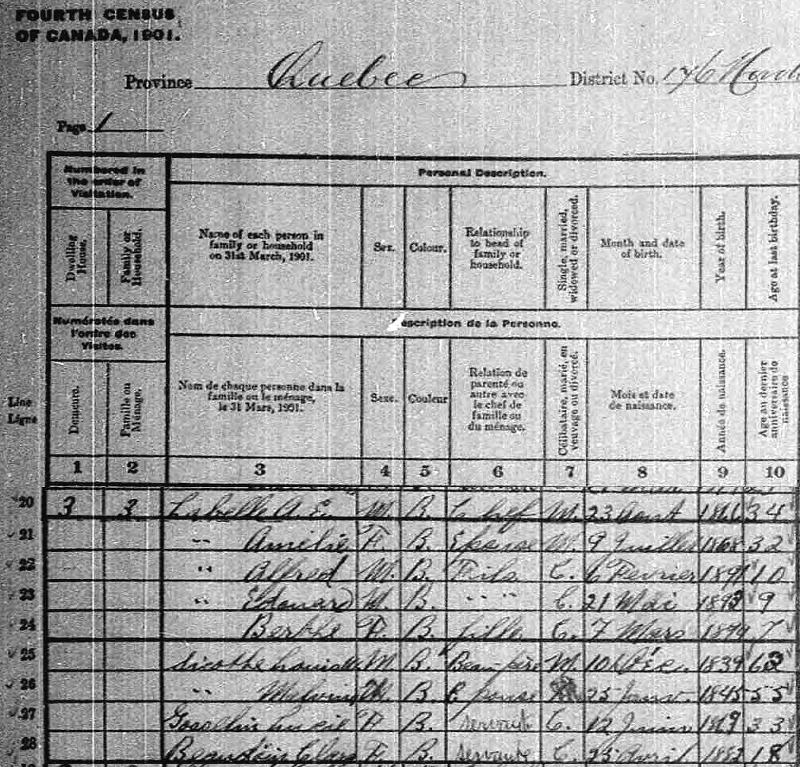 FOURTH CENSUS
OF CANADA, 1901.
Province Quebec District No. 176
Page 1
Numbered in the order of Visitation.
Personal Description.
Dwelling House.
Family or Household.
Name of each person in family or household on 31st March, 1901.
Sex.
Colour.
Relationship to head of family or household.
Single, married, widowed or divorced.
Month and date of birth.
Year of birth.
Age at last birthday.
Numérotés dans l'ordre des Visites.
escription de la Personne.
Line
Ligne
Demeure.
Famille ou Ménage.
Nom de chaque personne dans la famille ou le ménage, le 31 Mars, 1901.
Sexe.
Couleur
Relation de parenté ou autre avec le chef de famille ou du ménage.
Célibataire, marié, en veuvage ou divorcé.
Mois et date de naissance.
Année de naissance.
Age au dernier anniversaire de naissance
1 2 3 4 5 6 7 8 9 10
20 3 3 Labelle A. E. M. B. Chef M. 23 Aout 1866 34
21 " Amélie F. B. Epouse M. 9 Juillet 1868 32
22 " Alfred M. B. Fils C. 6 Fevrier 1891 10
23 " Edouard M. B. " " C. 21 Mai 1892 9
24 Berthe F. B. fille C. 7 Mars 1894 7
25 M. B. Beau père M. 10 Dec. 1839 62
26 " B. Epouse 25 Janv. 1845 55
27 Gosselin F. B. servant C. 12 Juin 33
28 Beaudoin Clara F. B. servante C. 23 Avril 18